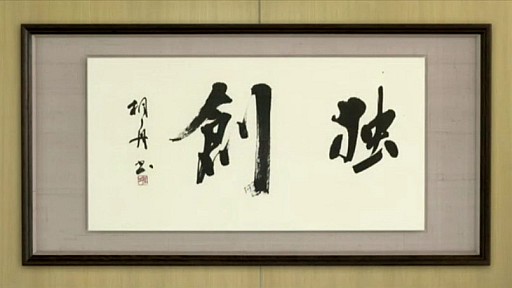 独創
桐舟書